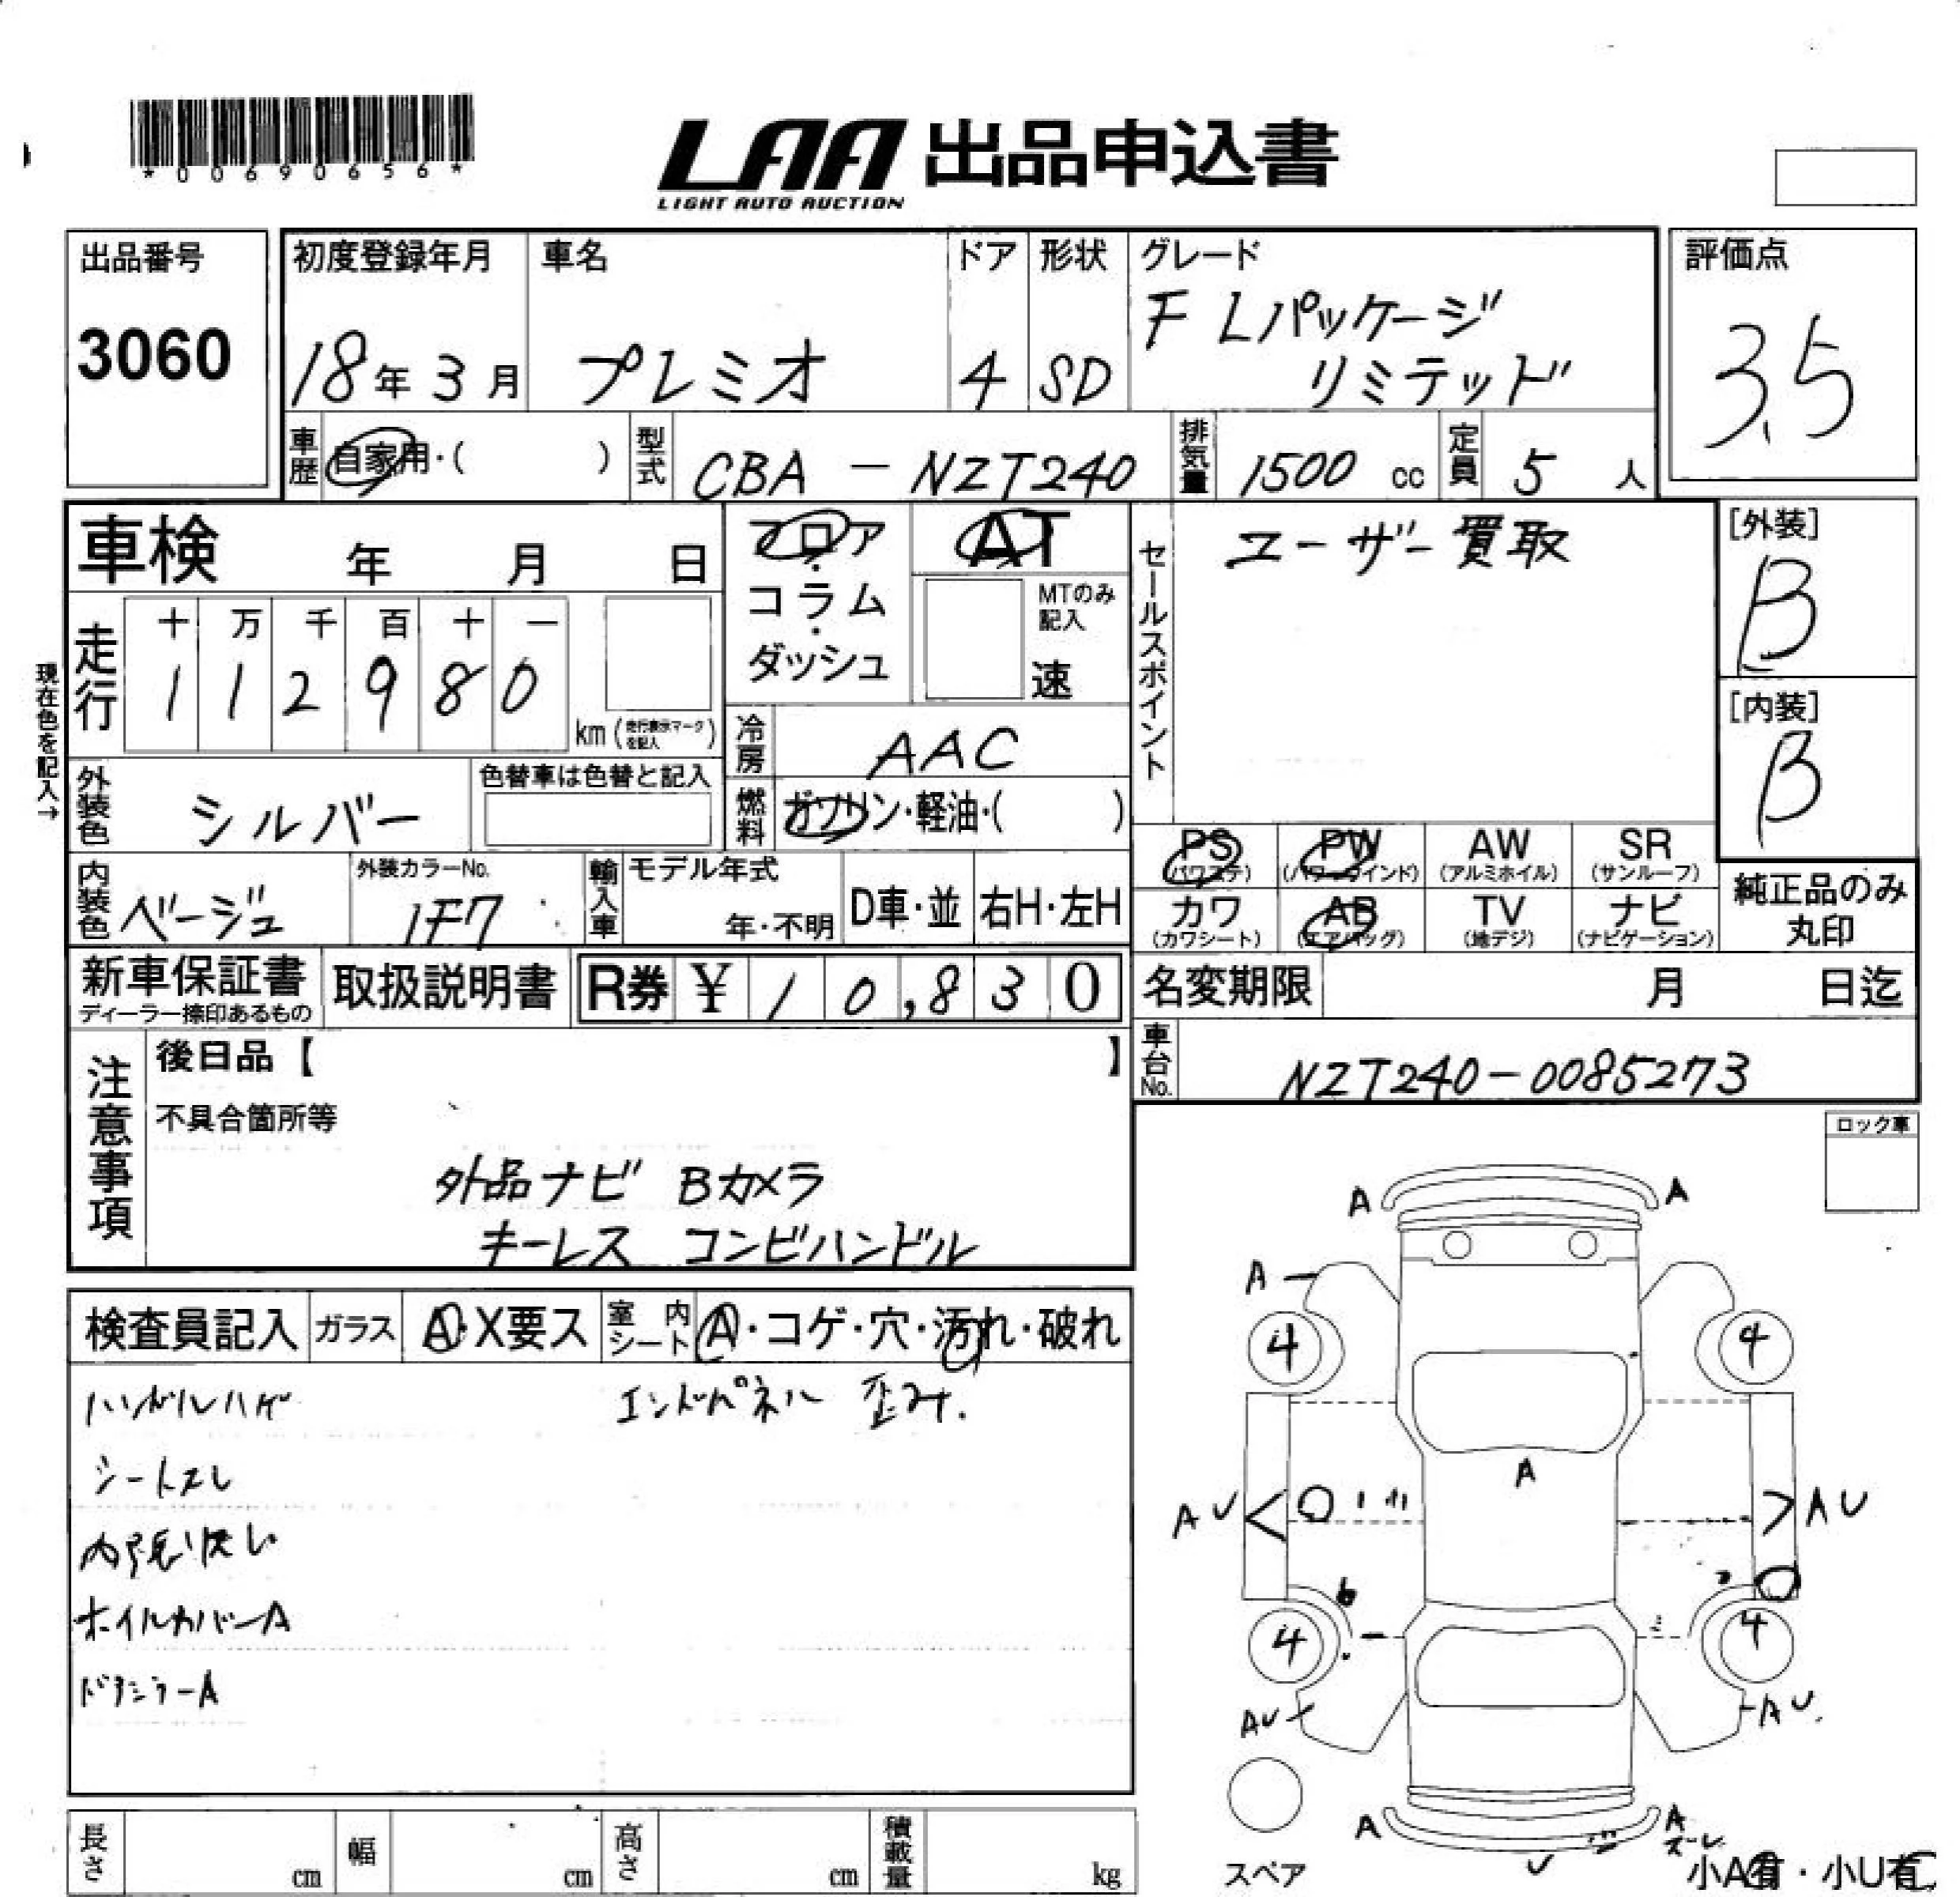 *00690656*
LAA 出品申込書
LIGHT AUTO AUCTION
出品番号
3060
初度登録年月
18年3月
車名
プレミオ
ドア
4
形状
SD
グレード
F Lパッケージ
リミテッド
評価点
3.5
車歴 自家用・( )
型式 CBA - NZT240
排気量 1500 cc
定員 5 人
車検 年 月 日
フロア・
コラム・
ダッシュ
AT
MTのみ
記入
速
セールスポイント
ユーザー買取
[外装]
B
[内装]
B
現在色を記入→
走行
十 万 千 百 十 一
1 1 2 9 8 0
km (走行表示マークを記入)
冷房 AAC
燃料 ガソリン・軽油・( )
外装色 シルバー
色替車は色替と記入
内装色 ベージュ
外装カラーNo.
1F7
輸入車
モデル年式
年・不明
D車・並
右H・左H
PS (パワステ)
PW (パワーウインド)
AW (アルミホイル)
SR (サンルーフ)
カワ (カワシート)
AB (エアバッグ)
TV (地デジ)
ナビ (ナビゲーション)
純正品のみ
丸印
新車保証書
ディーラー捺印あるもの
取扱説明書
R券 ¥ 10,830
名変期限 月 日迄
車台No. NZT240-0085273
注意事項
後日品【 】
不具合箇所等
外品ナビ Bカメラ
キーレス コンビハンドル
ロック車
検査員記入
ガラス A・X要ス
室内シート A・コゲ・穴・汚れ・破れ
ハンドルハゲ エンドパネル 歪み.
シートスレ
内張り汚レ
ホイルカバーA
ドアミラーA
A A
A
4 4
A
AU AU
4 4
AU AU
A A
ズーレ
U
スペア
小A有・小U有
長さ cm
幅 cm
高さ cm
積載量 kg